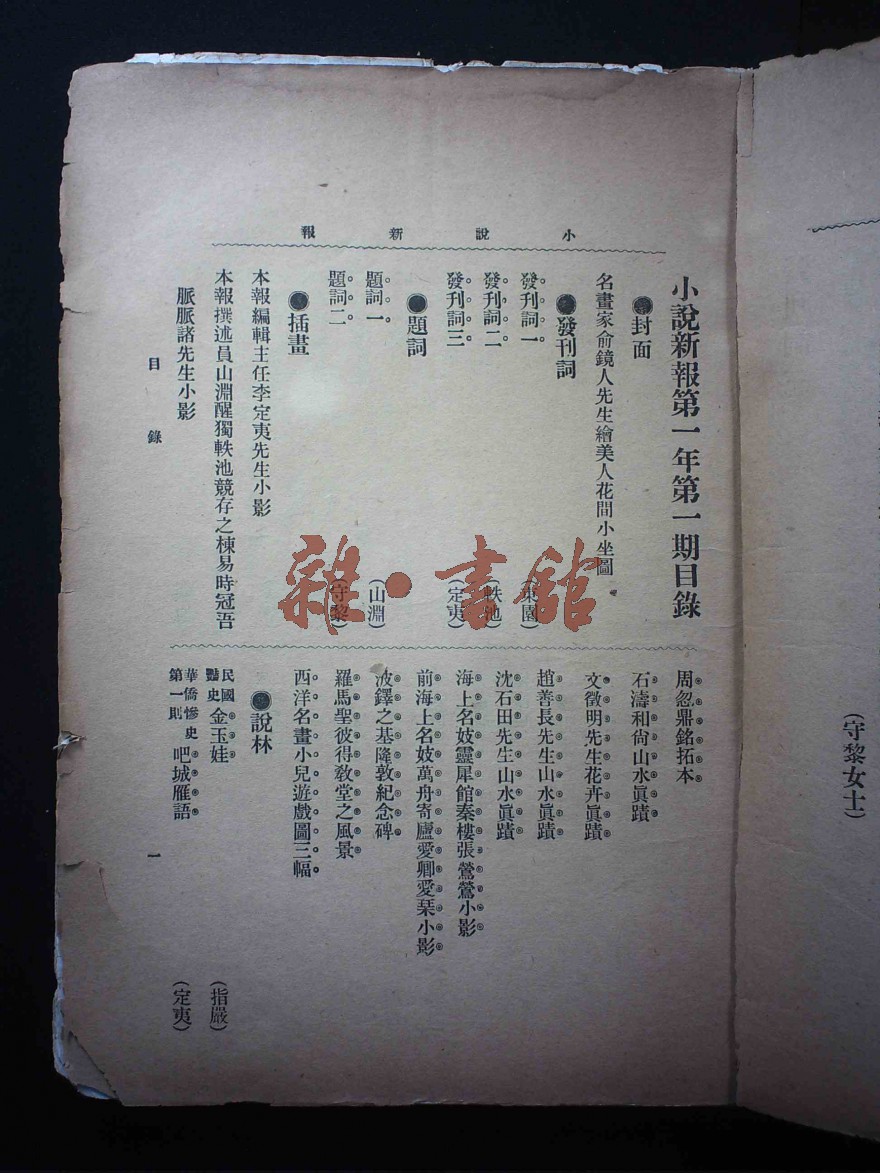 小說新報
小說新報第一年第一期目錄
●封面
名畫家俞鏡人先生繪美人花間小坐圖
●發刊詞
發刊詞一 (東園)
發刊詞二 (軼池)
發刊詞三 (定夷)
●題詞
題詞一 (山淵)
題詞二 (守黎)
●插畫
本報編輯主任李定夷先生小影
本報撰述員山淵醒獨軼池競存之棟易時冠吾
脈脈諸先生小影
周忽鼎銘拓本
石濤和尙山水眞蹟
文徵明先生花卉眞蹟
趙善長先生山水眞蹟
沈石田先生山水眞蹟
海上名妓靈犀館秦樓張鶯鶯小影
前海上名妓萬舟寄廬愛卿愛琹小影
波鐸之基隆敦紀念碑
羅馬聖彼得敎堂之風景
西洋名畫小兒遊戲圖三幅
●說林
民國豔史 金玉娃 (指嚴)
華僑慘史第一則 吧城雁語 (定夷)
目錄
一
(守黎女士)
雜·書館